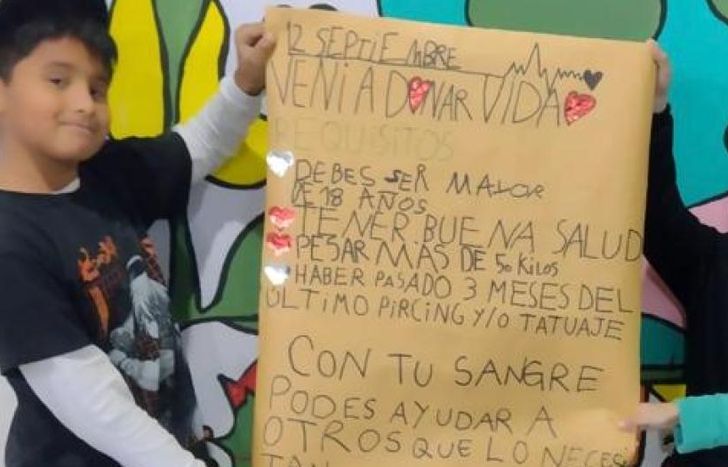 12 SEPTIEMBRE
VENI A DONAR VIDA
REQUISITOS
DEBES SER MAYOR
DE 18 AÑOS
TENER BUENA SALUD
PESAR MÁS DE 50 KILOS
HABER PASADO 3 MESES DEL
ÚLTIMO PIRCING Y/O TATUAJE
CON TU SANGRE
PODES AYUDAR A
OTROS QUE LO NECESI
TAN